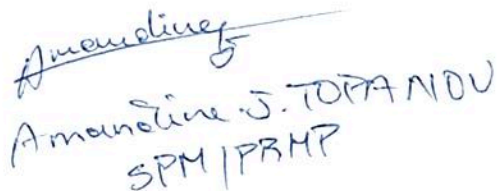 Amandine
Amandine J. TOPANOU
SPM/PRMP